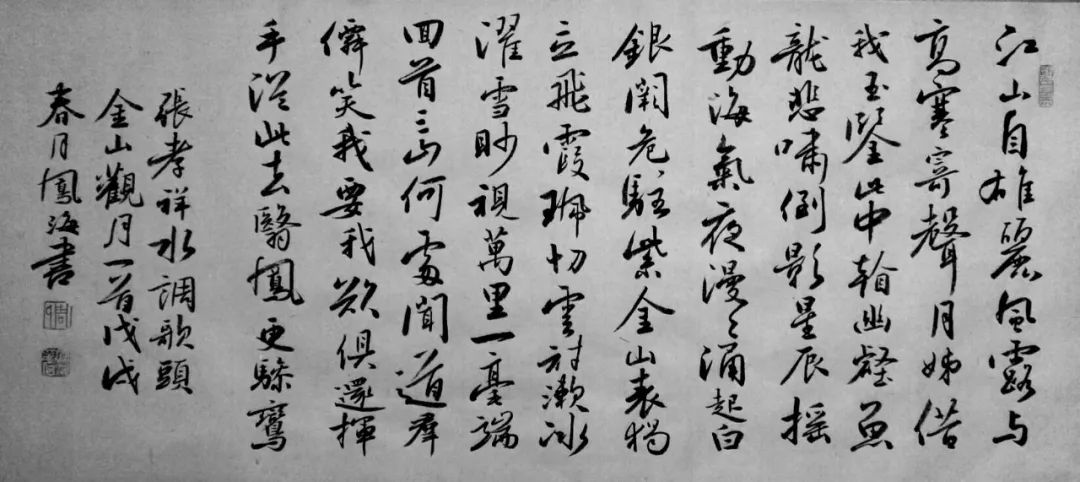 江山自雄麗風露与
高寒寄聲月姊借
我玉鑒此中看幽壑魚
龍悲嘯倒影星辰搖
動海氣夜漫〻涌起白
銀闕危駐紫金山表獨
立飛霞珮切雲冠漱冰
濯雪眇視萬里一毫端
回首三山何處聞道群
僊笑我要我欲俱還揮
手從此去翳鳳更驂鸞
張孝祥水調歌頭
金山觀月一首戊戌
春月鳳海書